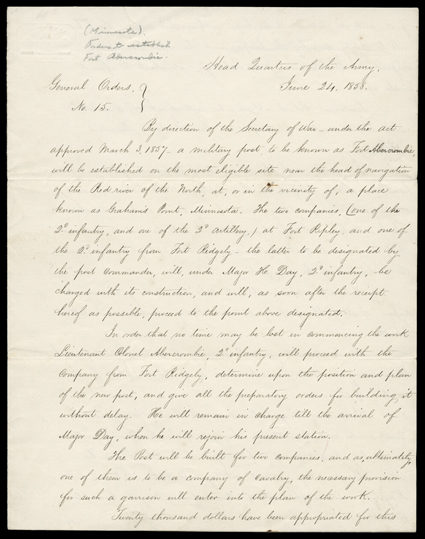 (Minnesota)
Orders to establish
Fort Abercrombie.
Head Quarters of the Army,
General Orders, June 24, 1858.
No. 15.
By direction of the Secretary of War, under the act
approved March 3, 1857, a military post, to be known as Fort Abercrombie,
will be established on the most eligible site near the head of navigation
of the Red river of the North, at, or in the vicinity of, a place
known as Graham's Point, Minnesota. The two companies, (one of the
2d infantry, and one of the 2d Artillery,) at Fort Ripley, and one of
the 2d infantry from Fort Ridgely, the latter to be designated by
the post Commander, will, under Major H. Day, 2d infantry, be
charged with its construction, and will, as soon after the receipt
hereof as possible, proceed to the point above designated.
In order that no time may be lost in commencing the work
Lieutenant Colonel Abercrombie, 2d infantry, will proceed with the
Company from Fort Ridgely, determine upon the position and plan
of the new post, and give all the preparatory orders for building it
without delay. He will remain in charge till the arrival of
Major Day, when he will rejoin his present station.
The Post will be built for two companies, and as, ultimately,
one of them is to be a company of Cavalry, the necessary provision
for such a garrison will enter into the plan of the work.
Twenty thousand dollars have been appropriated for this